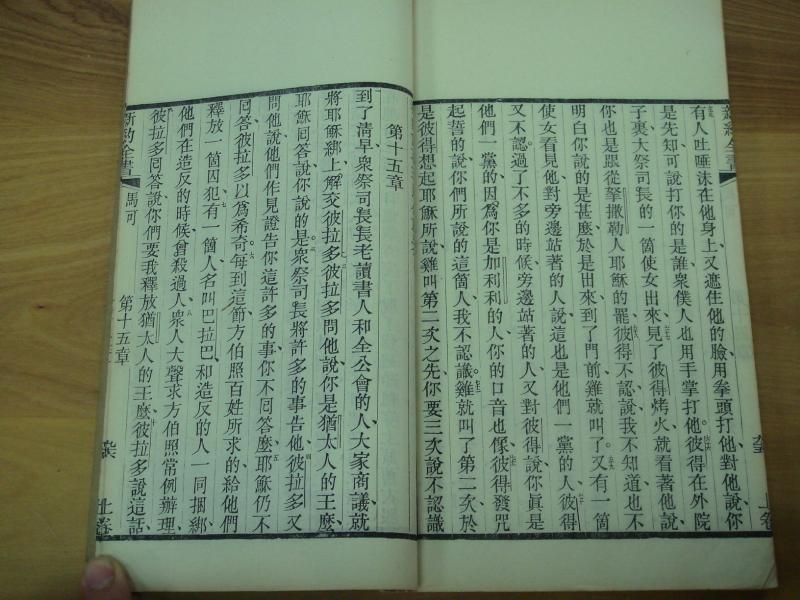 有人吐唾沫在他身上、又遮住他的臉、用拳頭打他、對他說、你
是先知、可說打你的是誰、衆僕人也用手掌打他。彼得在外院
子裏、大祭司長的一箇使女出來、見了彼得烤火、就看著他說、
你也是跟從拏撒勒人耶穌的、彼得不認、說、我不知道、也不
明白你說的是甚麼、於是出來、到了門前、雞就叫了。又有一箇
使女看見他、對旁邊站著的人說、這也是他們一黨的人、彼得
又不認。過了不多的時候、旁邊站著的人、又對彼得說、你眞是
他們一黨的、因爲你是加利利的人、你的口音也像、彼得發咒
起誓的說、你們所說的這箇人、我不認識。雞就叫了第二次、於
是彼得想起耶穌所說、雞叫第二次之先、你要三次說不認識
第十五章
到了淸早、衆祭司長、長老、讀書人、和全公會的人、大家商議、就
將耶穌綁上、解交彼拉多。彼拉多問他說、你是猶太人的王麼、
耶穌囘答說、你說的是。衆祭司長將許多的事告他、彼拉多又
問他說、他們作見證告你這許多的事、你不囘答麼、耶穌仍不
囘答、彼拉多以爲希奇。每到這節、方伯照百姓所求的、給他們
釋放一箇囚犯、有一箇人、名叫巴拉巴、和造反的人一同捆綁、
他們在造反的時候、曾殺過人、衆人大聲求方伯照常例辦理、
彼拉多囘答說、你們要我釋放猶太人的王麼、彼拉多說這話、
新約全書
馬可
第十五章
上卷